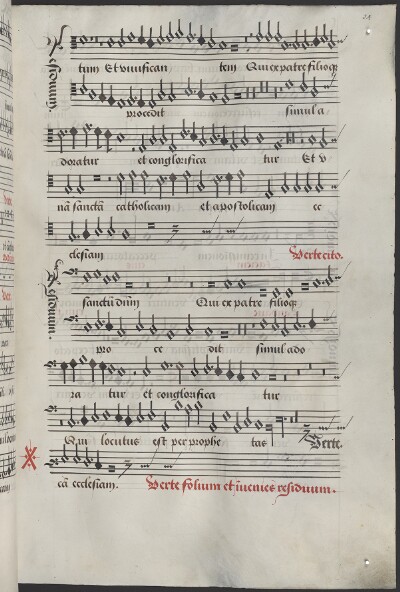 tum Et viuifican tem Qui ex patre filioqȝ
procedit simul a
doratur et conglorifica tur Et v
nā sanctā catholicam et apostolicam ec
clesiam Verte cito.
sanctū dn̄m Qui ex patre filioqȝ
pro ce dit simul ado
ra tur et conglorifica tur
Qui locutus est per prophe tas Verte.
cā ecclesiam. Verte folium et īuenies residuum.